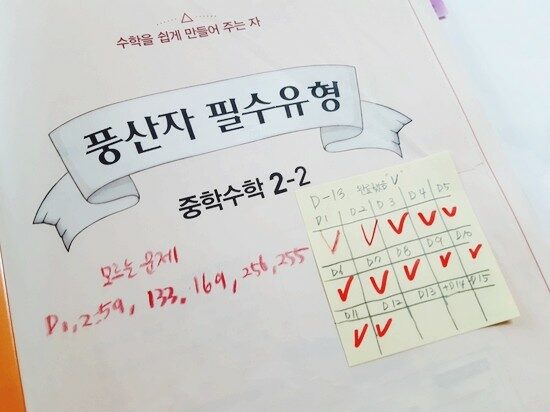 수학을 쉽게 만들어 주는 자
풍산자 필수유형
중학수학 2-2
모르는 문제
D1, 2:59, 133, 169, 256, 255
D-13 완료함은 "V"
D1 D2 D3 D4 D5
D6 D7 D8 D9 D10
D11 D12 D13 +D14 +D15